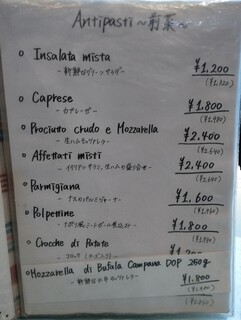 Antipasti 〜前菜〜
Insalata mista ¥1,200
-新鮮なグリーンサラダ- (¥1,320)
Caprese ¥1,800
-カプレーゼ- (¥1,980)
Prociutto crudo e Mozzarella ¥2,400
-生ハムとモッツァレラ- (¥2,640)
Affettati misti ¥2,400
-イタリアンサラミ、生ハムの盛り合せ- (¥2,640)
Parmigiana ¥1,600
-ナスのパルミジャーナ- (¥1,760)
Polpettine ¥1,800
-ナポリ風ミートボール煮込み- (¥1,980)
Crocche di Patate
Mozzarella di Bufala Campana DOP 250g
¥1,800